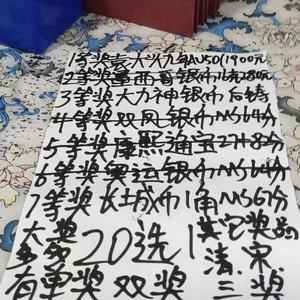 1等奖袁大头九年AU50(1900元
2等奖墨西哥银币
3等奖大力神银币后铸
4等奖双凤银币MS64分
5等奖康熙通宝27+8分
6等奖奥运银币MS64分
7等奖长城币1角MS67分
大奖 20选1 其它奖品
清宋
有单奖 双奖 三奖